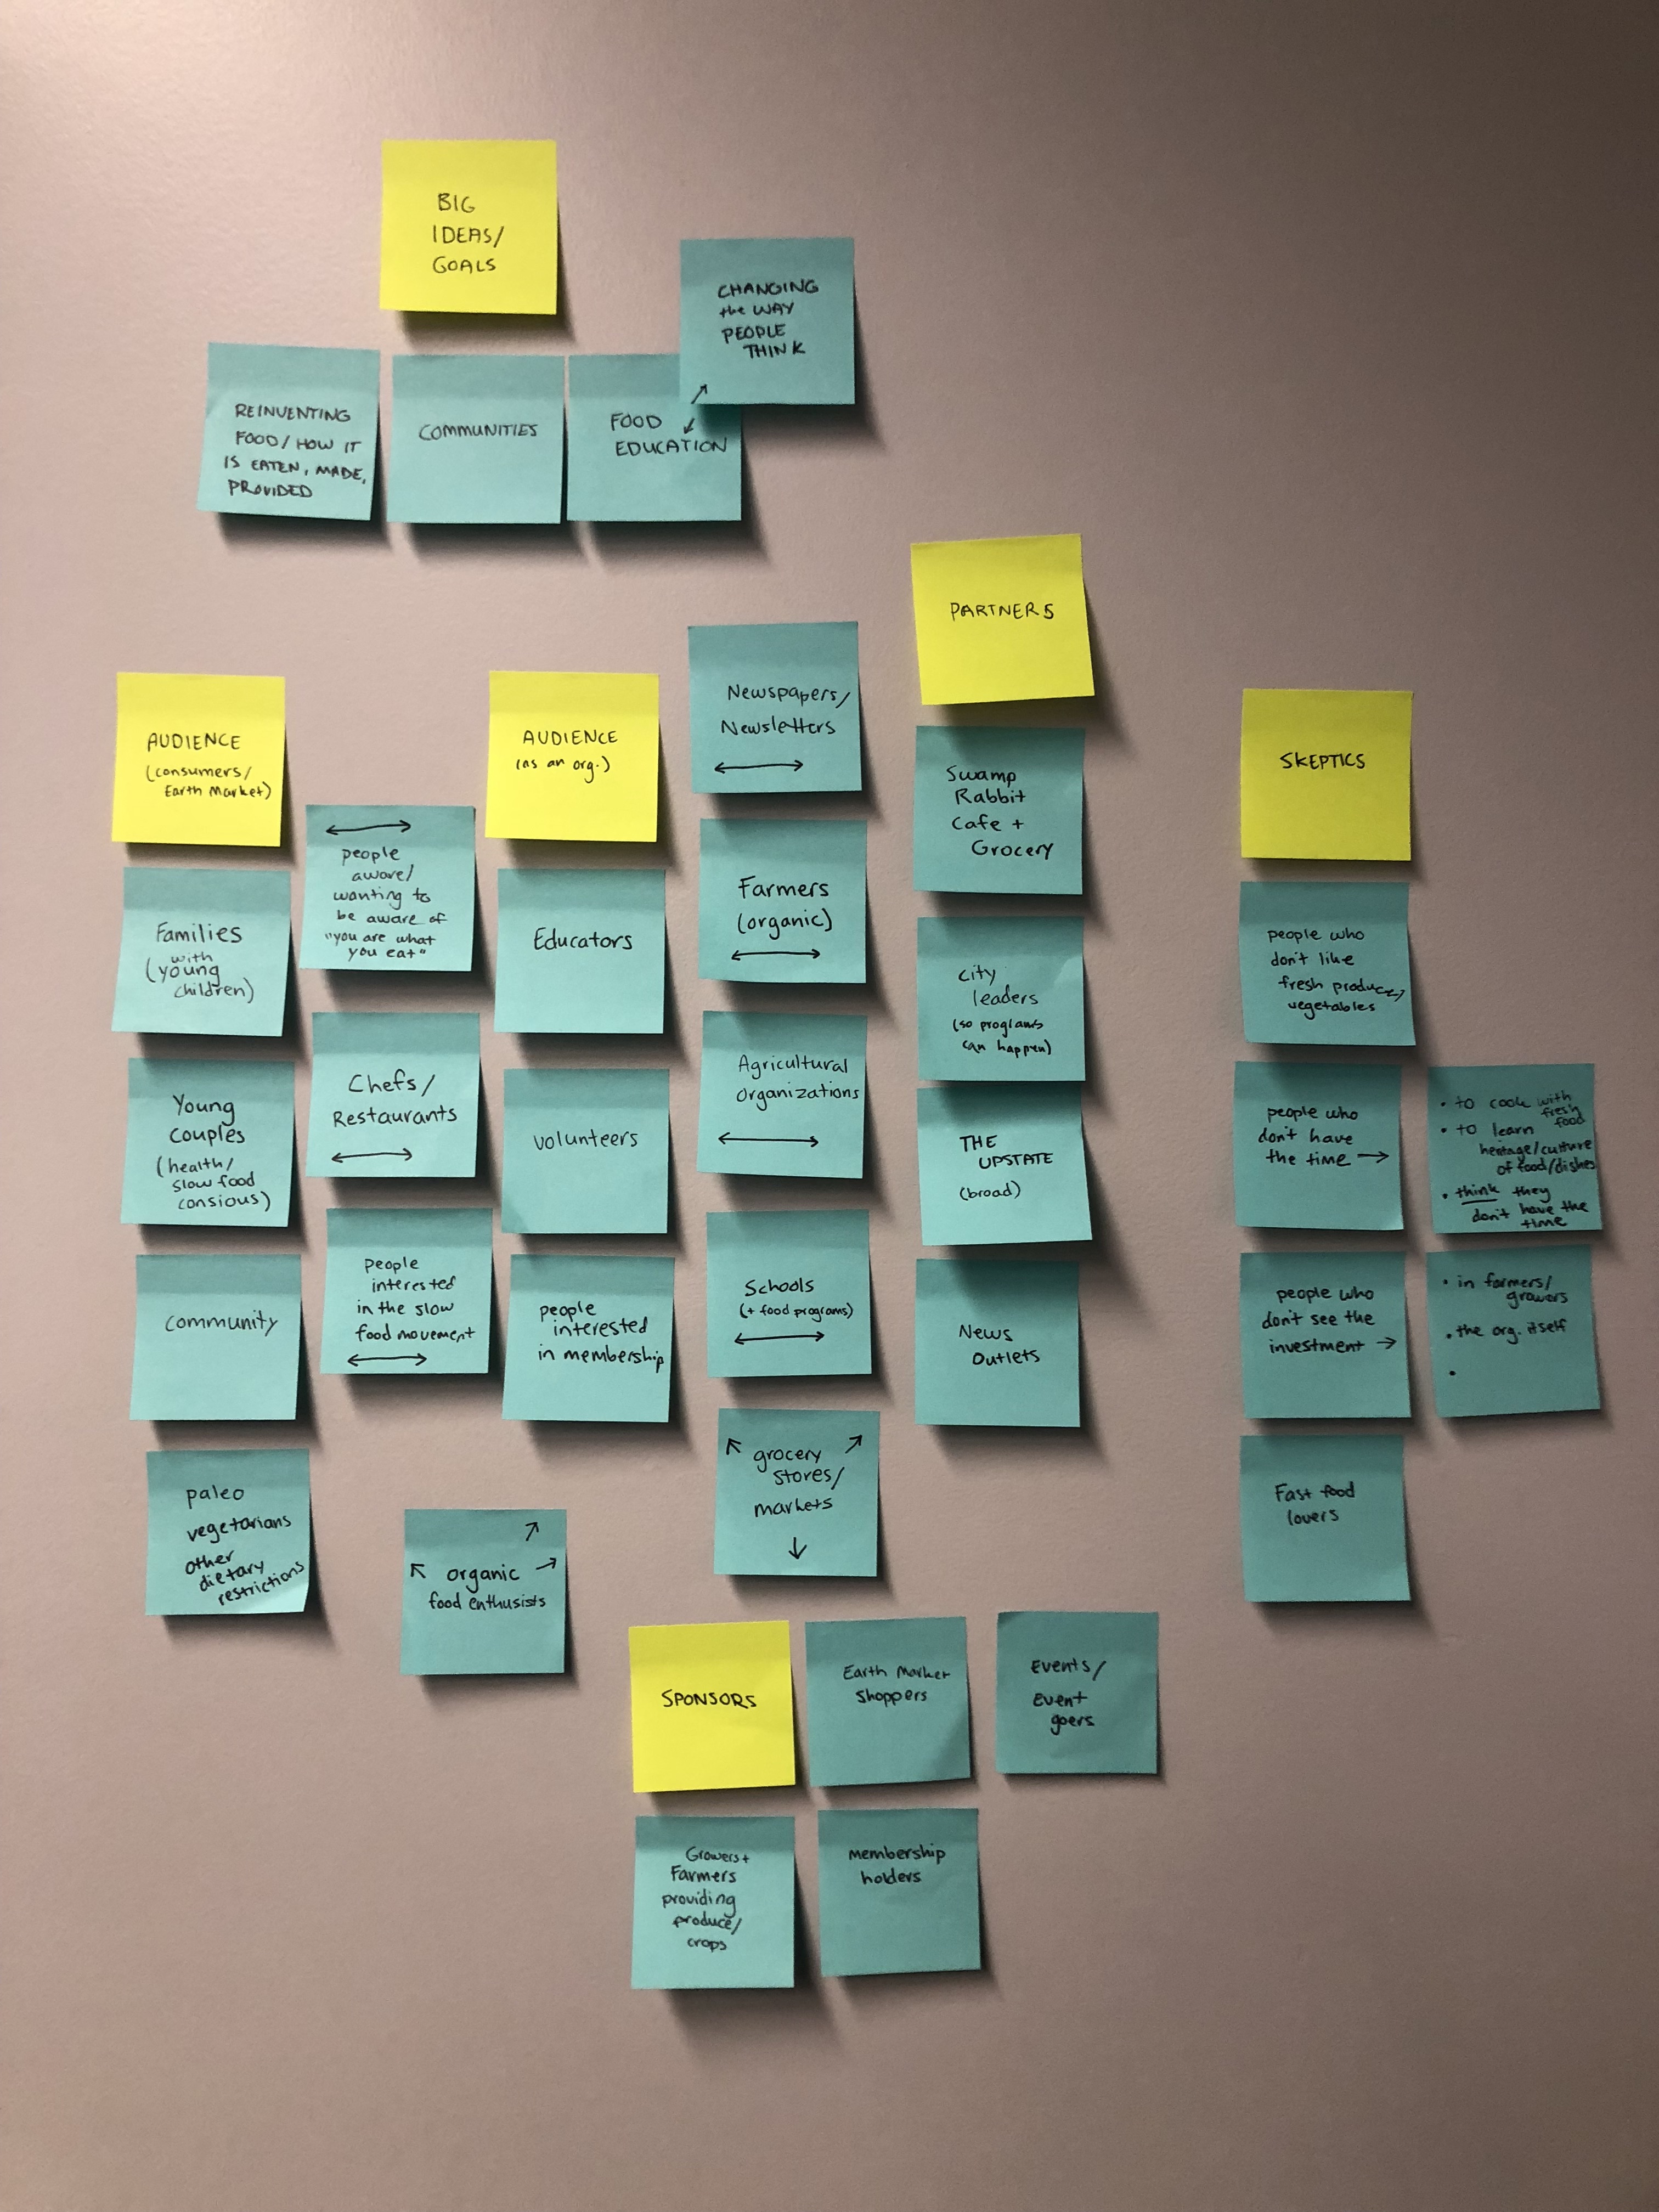 BIG
IDEAS/
GOALS
CHANGING
the WAY
PEOPLE
THINK
REINVENTING
FOOD/HOW IT
IS EATEN, MADE,
PROVIDED
COMMUNITIES
FOOD
EDUCATION
AUDIENCE
(consumers/
Earth Market)
Families
with
(young
children)
Young
couples
(health/
slow food
consious)
community
paleo
vegetarians
other
dietary
restrictions
people
aware/
wanting to
be aware of
"you are what
you eat"
Chefs/
Restaurants
people
interested
in the slow
food movement
organic
food enthusists
AUDIENCE
(as an org.)
Educators
volunteers
people
interested
in membership
Newspapers/
Newsletters
Farmers
(organic)
Agricultural
organizations
Schools
(+ food programs)
grocery
stores/
markets
PARTNERS
Swamp
Rabbit
Cafe +
Grocery
city
leaders
(so programs
can happen)
THE
UPSTATE
(broad)
News
Outlets
SKEPTICS
people who
don't like
fresh produce/
vegetables
people who
don't have
the time →
• to cook with
fresh
food
• to learn
heritage/culture
of food/dishes
• think they
don't have the
time
people who
don't see the
investment →
• in farmers/
growers
• the org. itself
•
Fast food
lovers
SPONSORS
Earth Market
shoppers
Events/
Event
goers
Growers +
Farmers
providing
produce/
crops
membership
holders